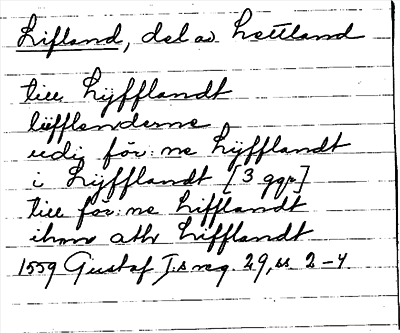 Lifland, del av Lettland
till Lijfflandt
lüfflenderne
udij för:ne Lijfflandt
i Lijfflandt [3 ggr]
till för:ne Lifflandt
ihnn athr Lifflandt
1559 Gustaf I:s reg. 29, s. 2-4